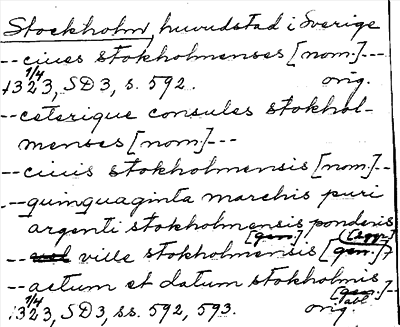 Stockholm, huvudstad i Sverige
-- ciues stokholmenses [nom.] ---
1/4
1323, SD 3, s. 592. orig.
-- ceterique consules stokhol-
menses [nom.] ---
-- ciuis stokholmensis [nom.] --
-- quinquaginta marchis puri
argenti stokholmensis ponderis
[gen.] (Logg.)
-- ville stokholmensis [gen.]
-- actum et datum stokholmis
[gen.] abl. --
1/4
1323, SD 3, ss. 592, 593. orig.